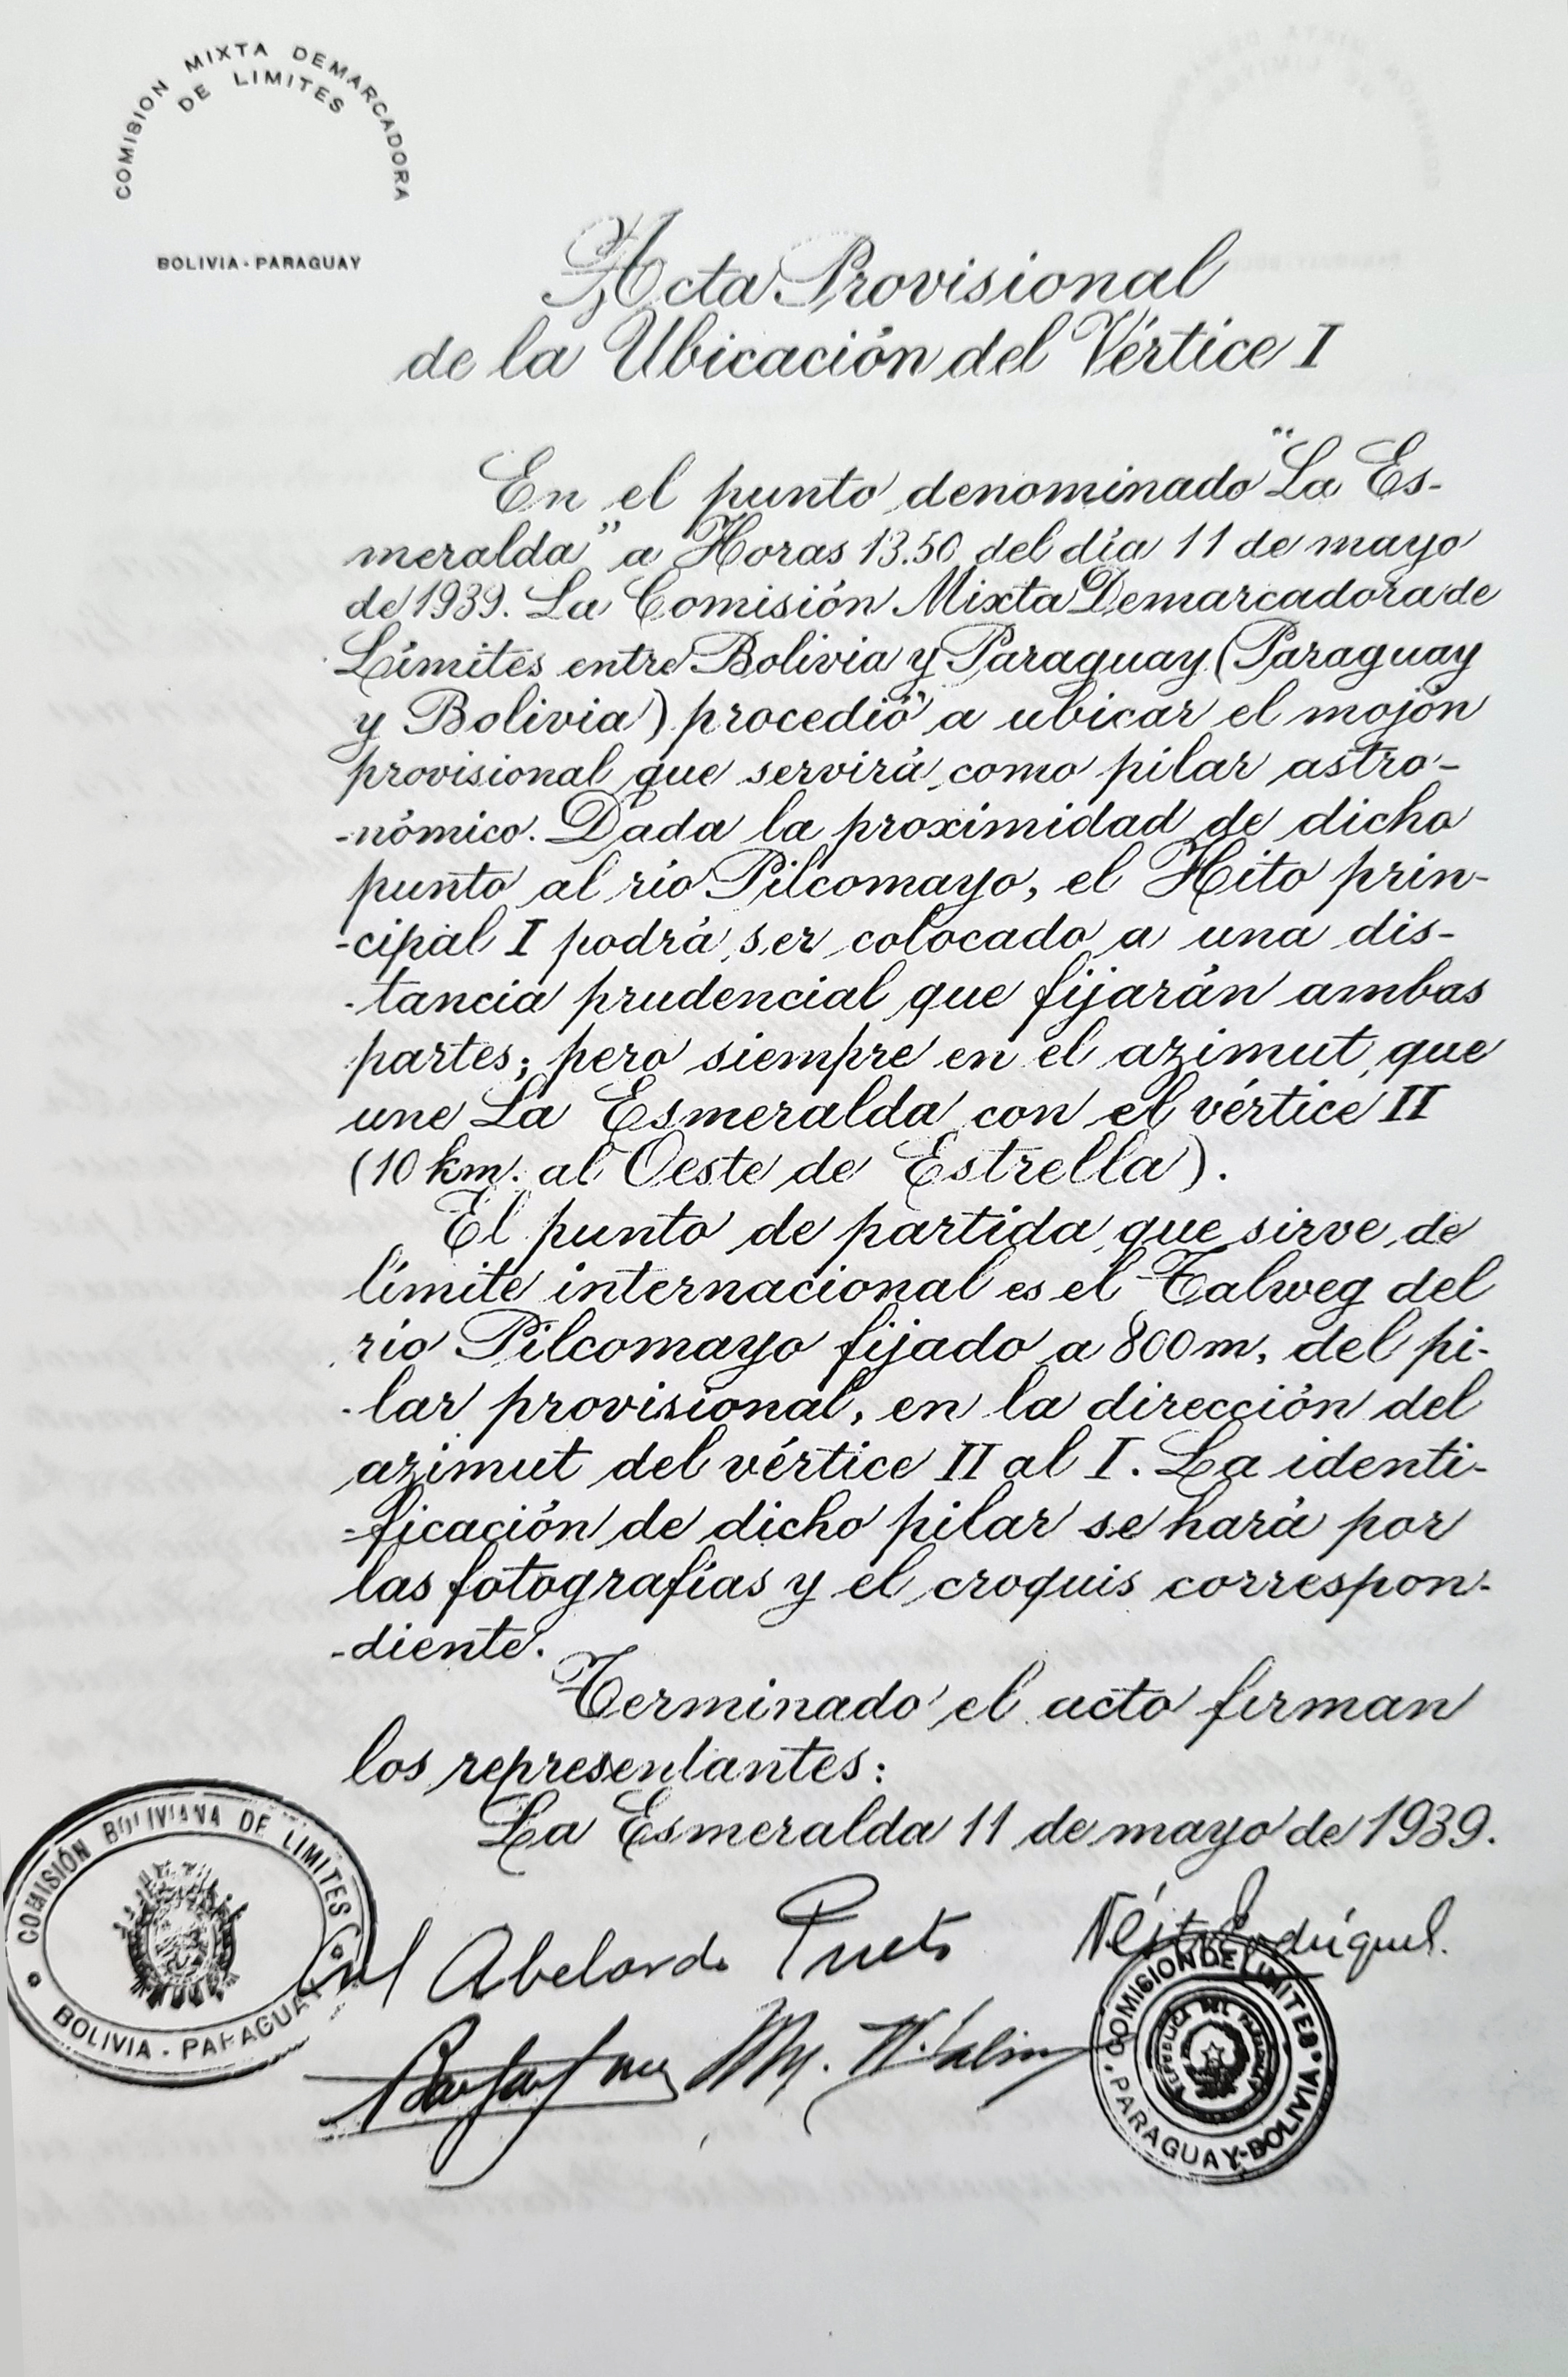 COMISION MIXTA DEMARCADORA
DE LIMITES
BOLIVIA - PARAGUAY
Acta Provisional
de la Ubicación del Vértice I
En el punto denominado "La Es-
meralda" a Horas 13.50 del día 11 de mayo
de 1939. La Comisión Mixta Demarcadora de
Límites entre Bolivia y Paraguay (Paraguay
y Bolivia) procedió a ubicar el mojón
provisional que servirá como pilar astro-
-nómico. Dada la proximidad de dicho
punto al río Pilcomayo, el Hito prin-
-cipal I podrá ser colocado a una dis-
-tancia prudencial que fijarán ambas
partes; pero siempre en el azimut que
une La Esmeralda con el vértice II
(10 km. al Oeste de Estrella).
El punto de partida que sirve de
límite internacional es el Talweg del
río Pilcomayo fijado a 800 m. del pi-
-lar provisional, en la dirección del
azimut del vértice II al I. La identi-
-ficación de dicho pilar se hará por
las fotografías y el croquis correspon-
-diente.
Terminado el acto firman
los representantes:
La Esmeralda 11 de mayo de 1939.
COMISIÓN BOLIVIANA DE LIMITES
BOLIVIA - PARAGUAY
Abelardo
COMISION DE LIMITES
REPUBLICA DEL PARAGUAY
PARAGUAY-BOLIVIA